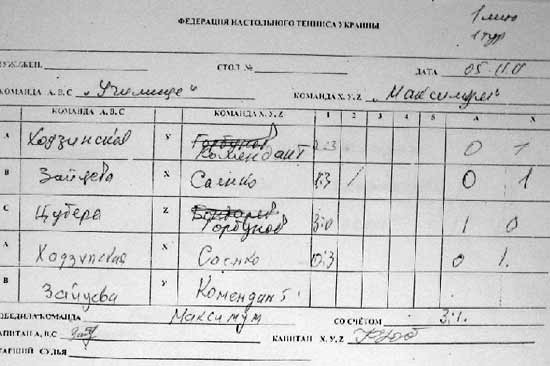 1 лига
1 тур
ФЕДЕРАЦИЯ НАСТОЛЬНОГО ТЕННИСА УКРАИНЫ
СТОЛ № ДАТА 05
КОМАНДА А,В,С „Училище“ КОМАНДА Х,У,Z „Максимум“
КОМАНДА А,В,С КОМАНДА Х,У,Z 1 2 3 4 5 А Х
А Ходзинская У Горбунов Комендант 2:3 0 1
В Зайцева Х Саенко 1:3 0 1
С Цубера Z Бондарев Горбунов 3:0 1 0
А Ходзинская Х Саенко 0:3 0 1
В Зайцева У Комендант
ПОБЕДИЛА КОМАНДА Максимум СО СЧЁТОМ 3:1
КАПИТАН А,В,С КАПИТАН Х,У,Z
СТАРШИЙ СУДЬЯ